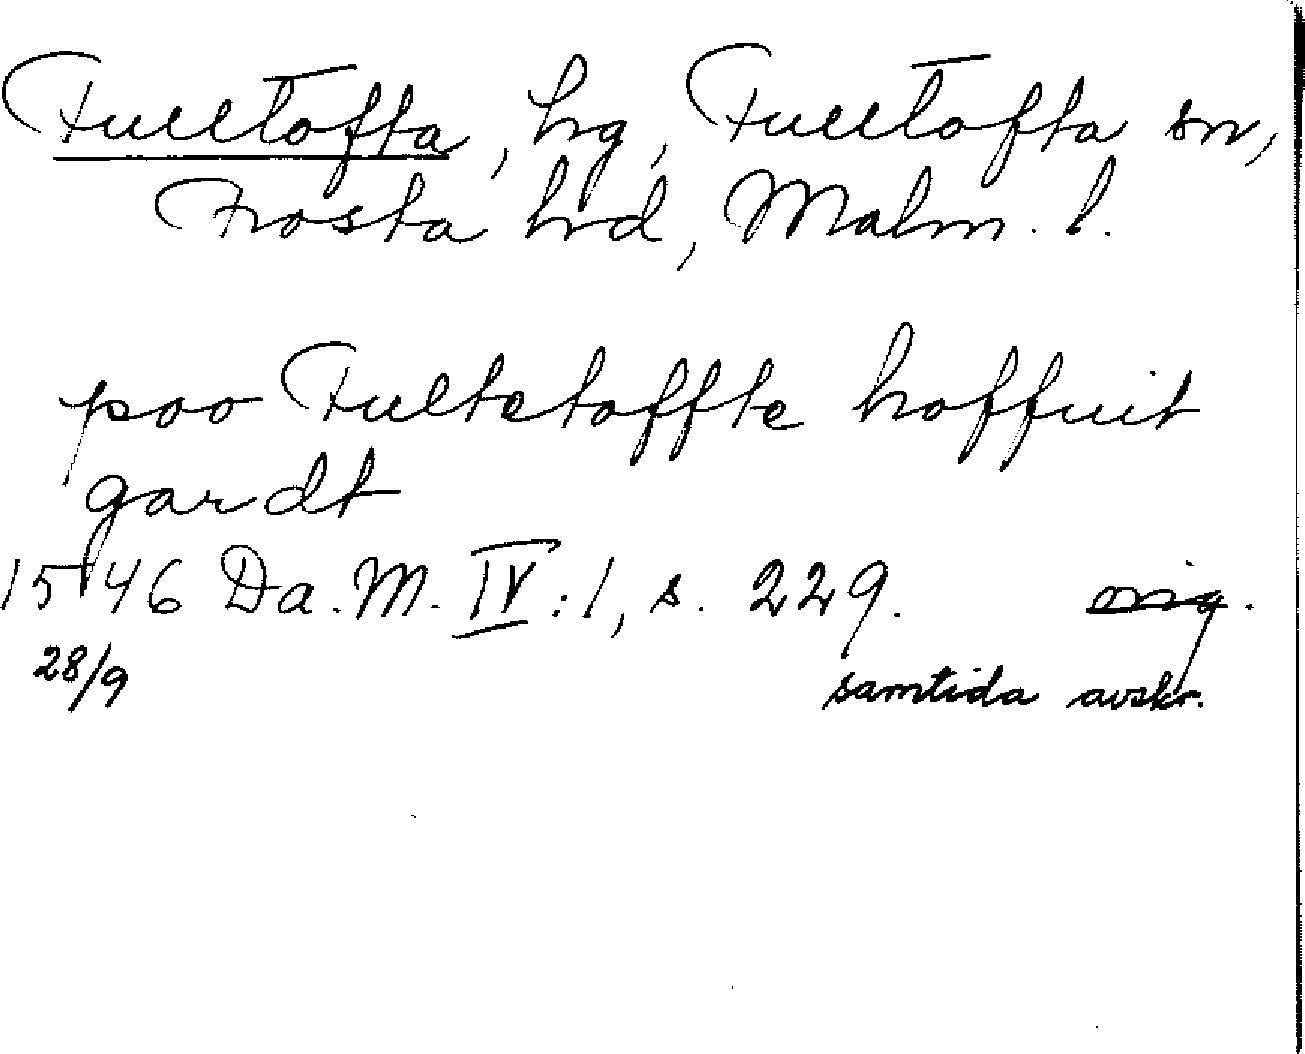 Fulltofta, hg, Fulltofta sn,
Frosta hd, Malm. l.
poo Fultetoffte hoffuit
gardt
1546 Da. M. IV:1, s. 229. orig.
28/9 samtida avskr.